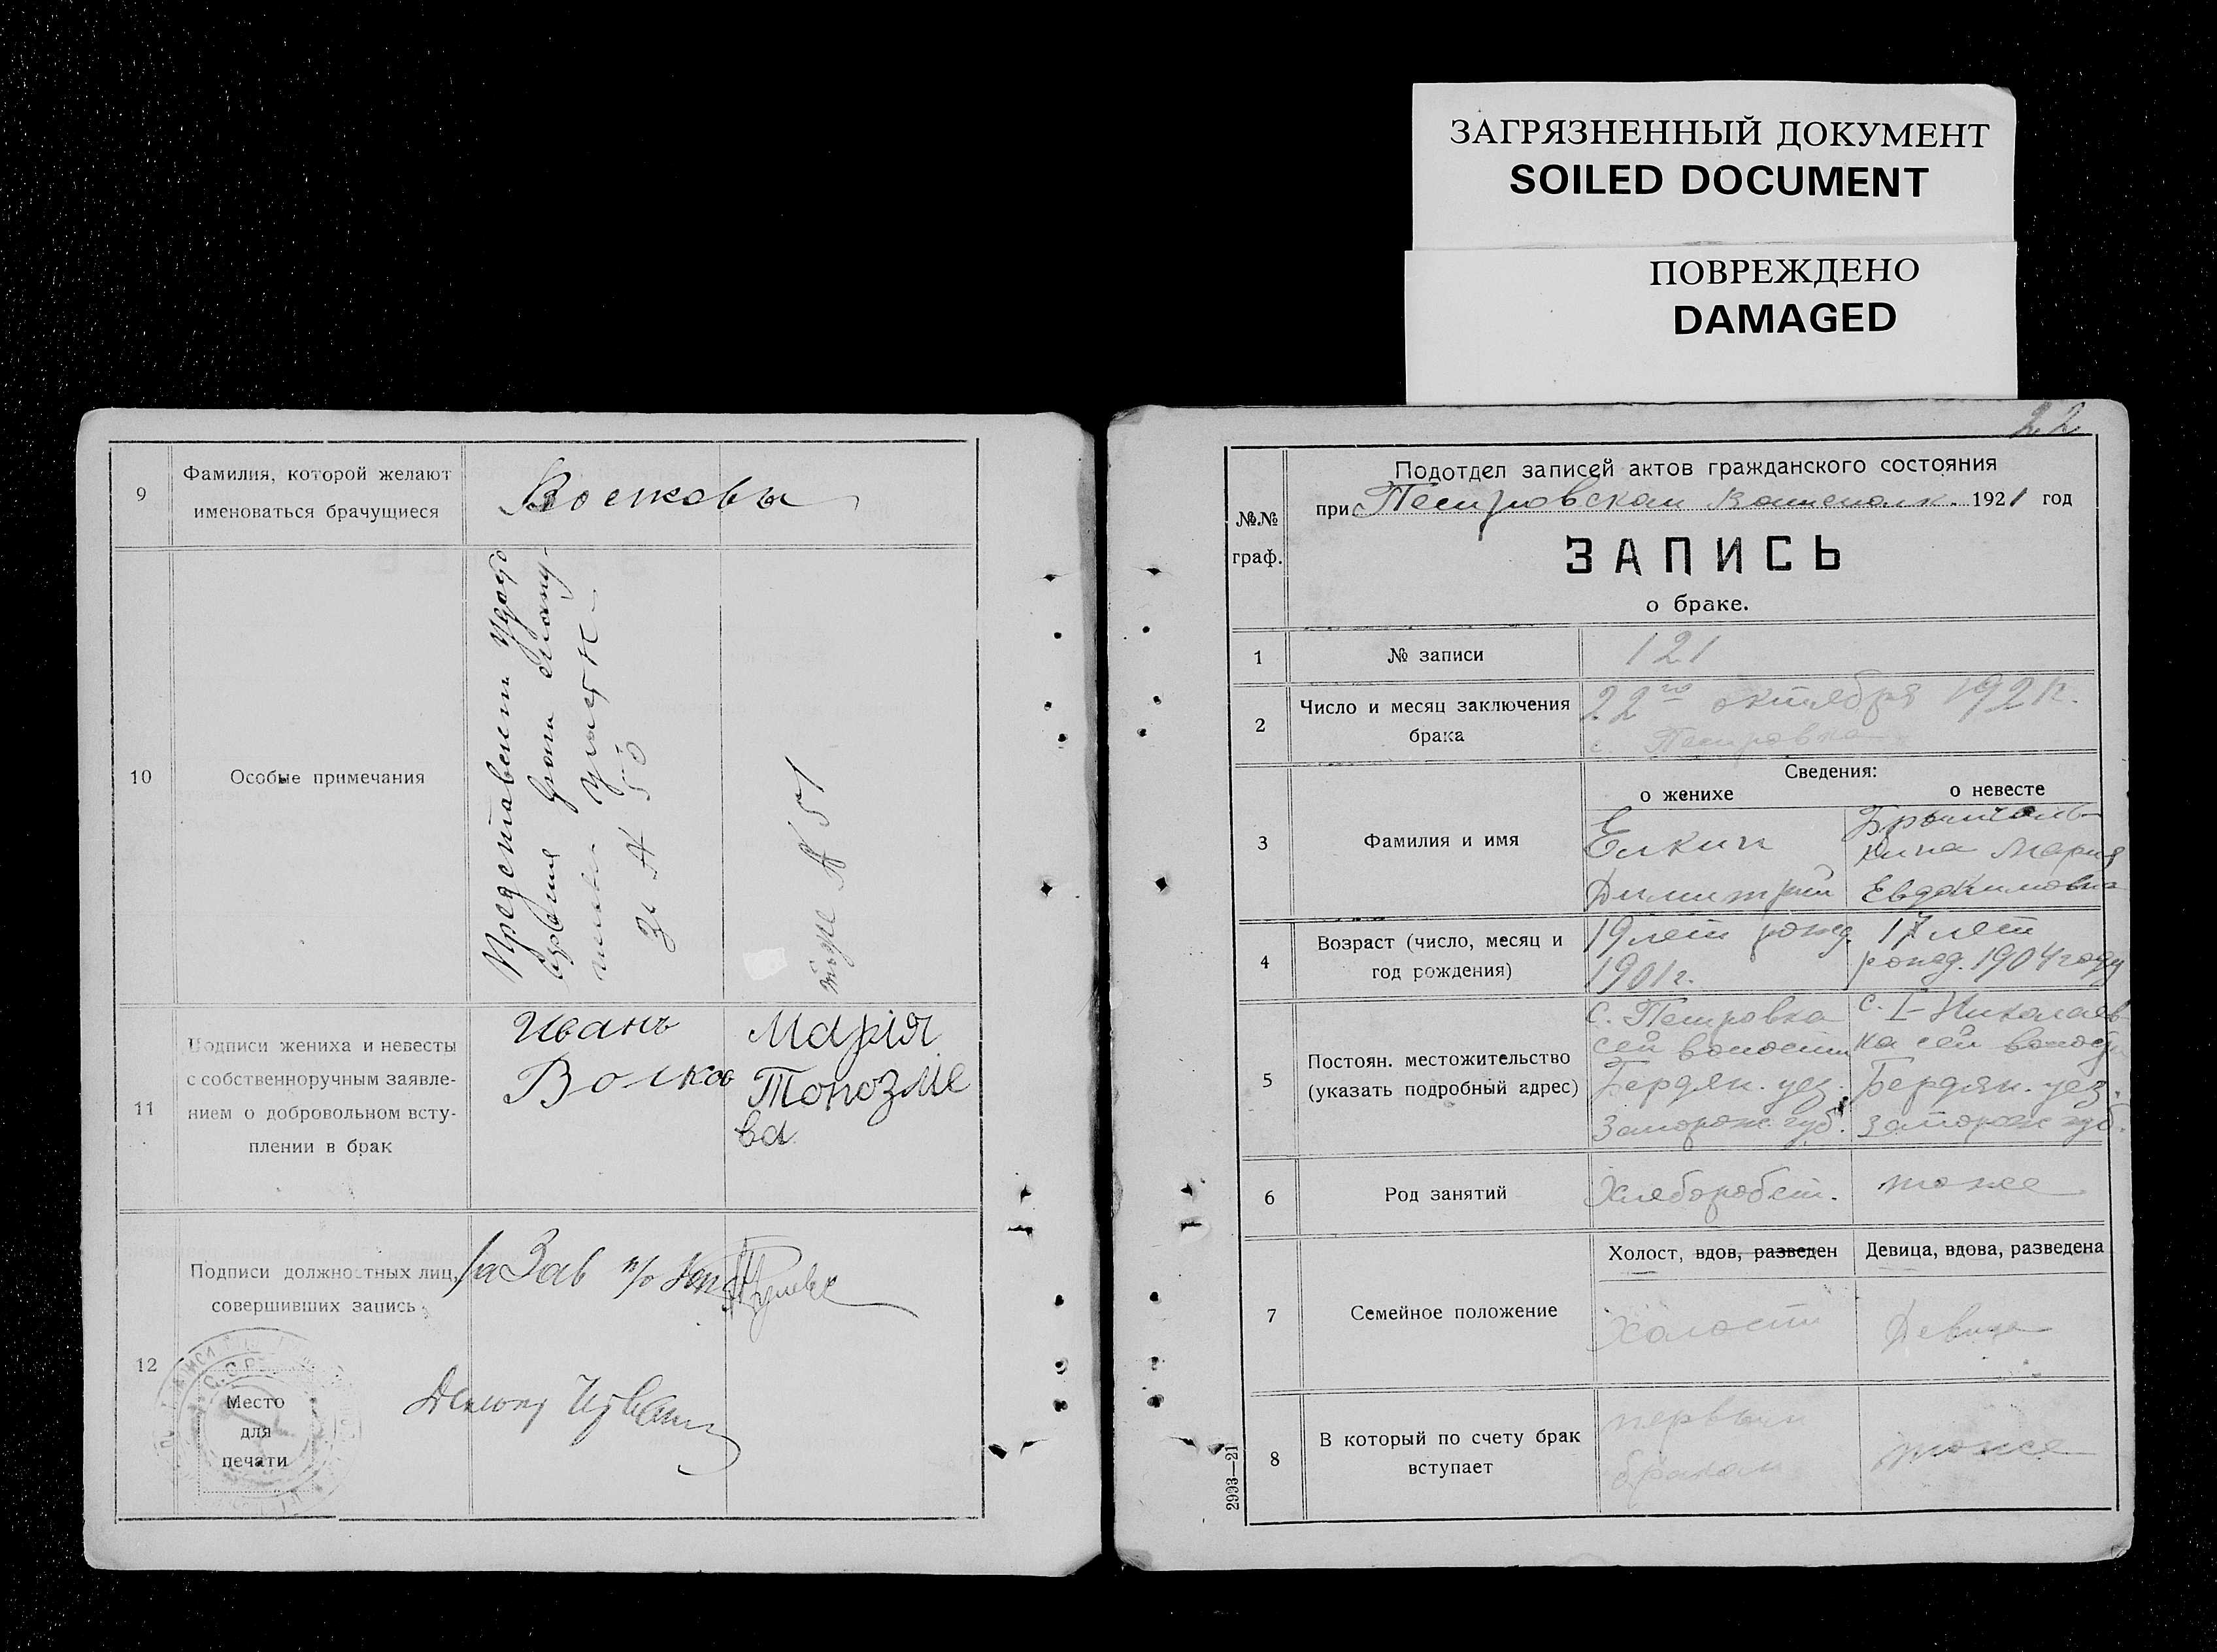 ЗАГРЯЗНЕННЫЙ ДОКУМЕНТ
SOILED DOCUMENT
ПОВРЕЖДЕНО
DAMAGED
9
Фамилия, которой желают
именоваться брачущиеся
10
Особые примечания
Представлены
за № 50
тоже № 51
11
Подписи жениха и невесты
с собственноручным заявле-
нием о добровольном всту-
плении в брак
Иванъ
Волков
Марія
Топозлие
ва
12
Подписи должностных лиц,
совершивших запись
Зав п/о
Место
для
печати
22
№№
граф.
Подотдел записей актов гражданского состояния
при Петровском 1921 год
ЗАПИСЬ
о браке.
1
№ записи
121
2
Число и месяц заключения
брака
22го октября 1921г.
с. Петровка
Сведения:
о женихе
о невесте
3
Фамилия и имя
Елкин
Димитрий
Мария
Евдокимовна
4
Возраст (число, месяц и
год рождения)
19 лет рожд.
1901г.
17 лет
рожд. 1904 году
5
Постоян. местожительство
(указать подробный адрес)
с. Петровка
сей волости
Бердян. уез.
Запорож. губ.
с. I-Николаев
ка сей волости
Бердян. уез.
Запорож губ.
6
Род занятий
Хлебороб
тоже
7
Семейное положение
Холост, вдов, разведен
Девица, вдова, разведена
Холост
Девица
8
В который по счету брак
вступает
первым
браком
тоже
2993—21